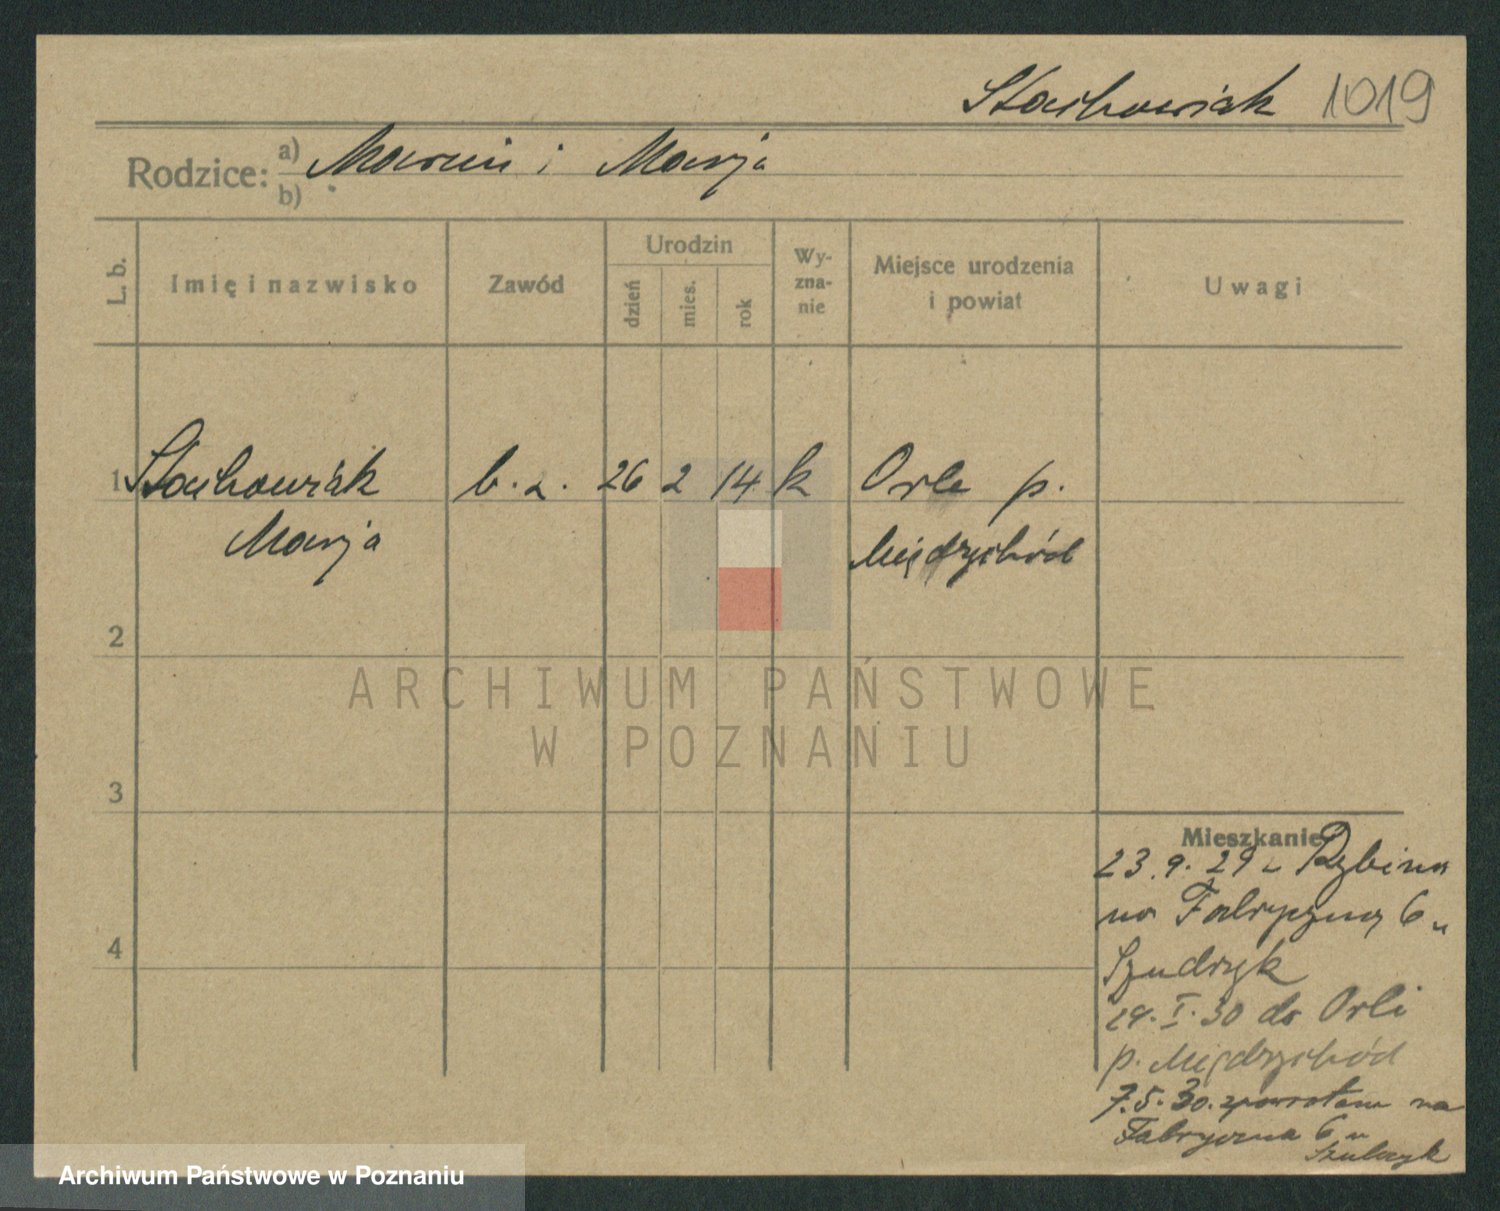 Stachowiak 1019
Rodzice: a) Marcin i Marja
b)
L. b.
Imię i nazwisko
Zawód
Urodzin
dzień
mies.
rok
Wy-
zna-
nie
Miejsce urodzenia
i powiat
Uwagi
1 Stachowiak b. z. 26 2 14 k Orle p.
Marja Międzychód
2
3
4
ARCHIWUM PAŃSTWOWE
W POZNANIU
Mieszkanie
23. 9. 29 z
na Fabryczną 6 u
14. I. 30 do Orli
p. Międzychód
7. 5. 30. zpowrotem na
Fabryczna 6 u
Szulczyk
Archiwum Państwowe w Poznaniu